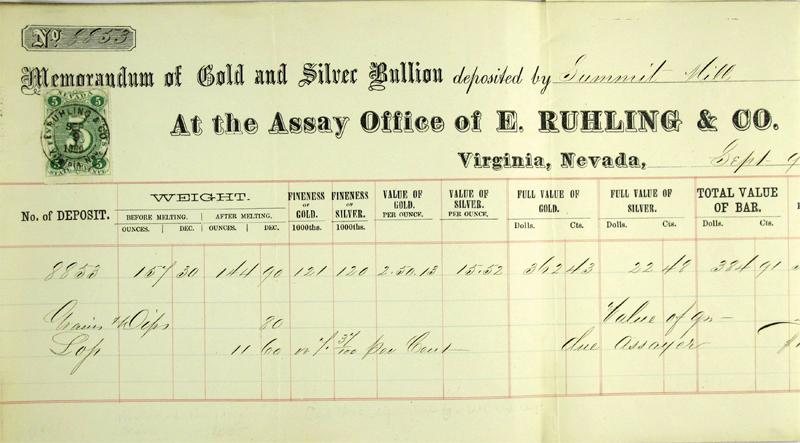 No. 8853
Memorandum of Gold and Silver Bullion deposited by Summit Mill
At the Assay Office of E. RUHLING & CO.
Virginia, Nevada, Sept 9
No. of DEPOSIT. WEIGHT. FINENESS OF GOLD. 1000ths. FINENESS OF SILVER. 1000ths. VALUE OF GOLD. PER OUNCE. VALUE OF SILVER. PER OUNCE. FULL VALUE OF GOLD. FULL VALUE OF SILVER. TOTAL VALUE OF BAR.
BEFORE MELTING. AFTER MELTING.
OUNCES. DEC. OUNCES. DEC. Dolls. Cts. Dolls. Cts. Dolls. Cts.
8853 157 30 144 90 121 120 2.50.13 15.52 362 43 22 48 384 91
Grains Dips 80 Value of
Loss 11 60 or 7 37/100 per Cent due assayer
NEVADA
5 5
RUHLING & CO.
5
5 5